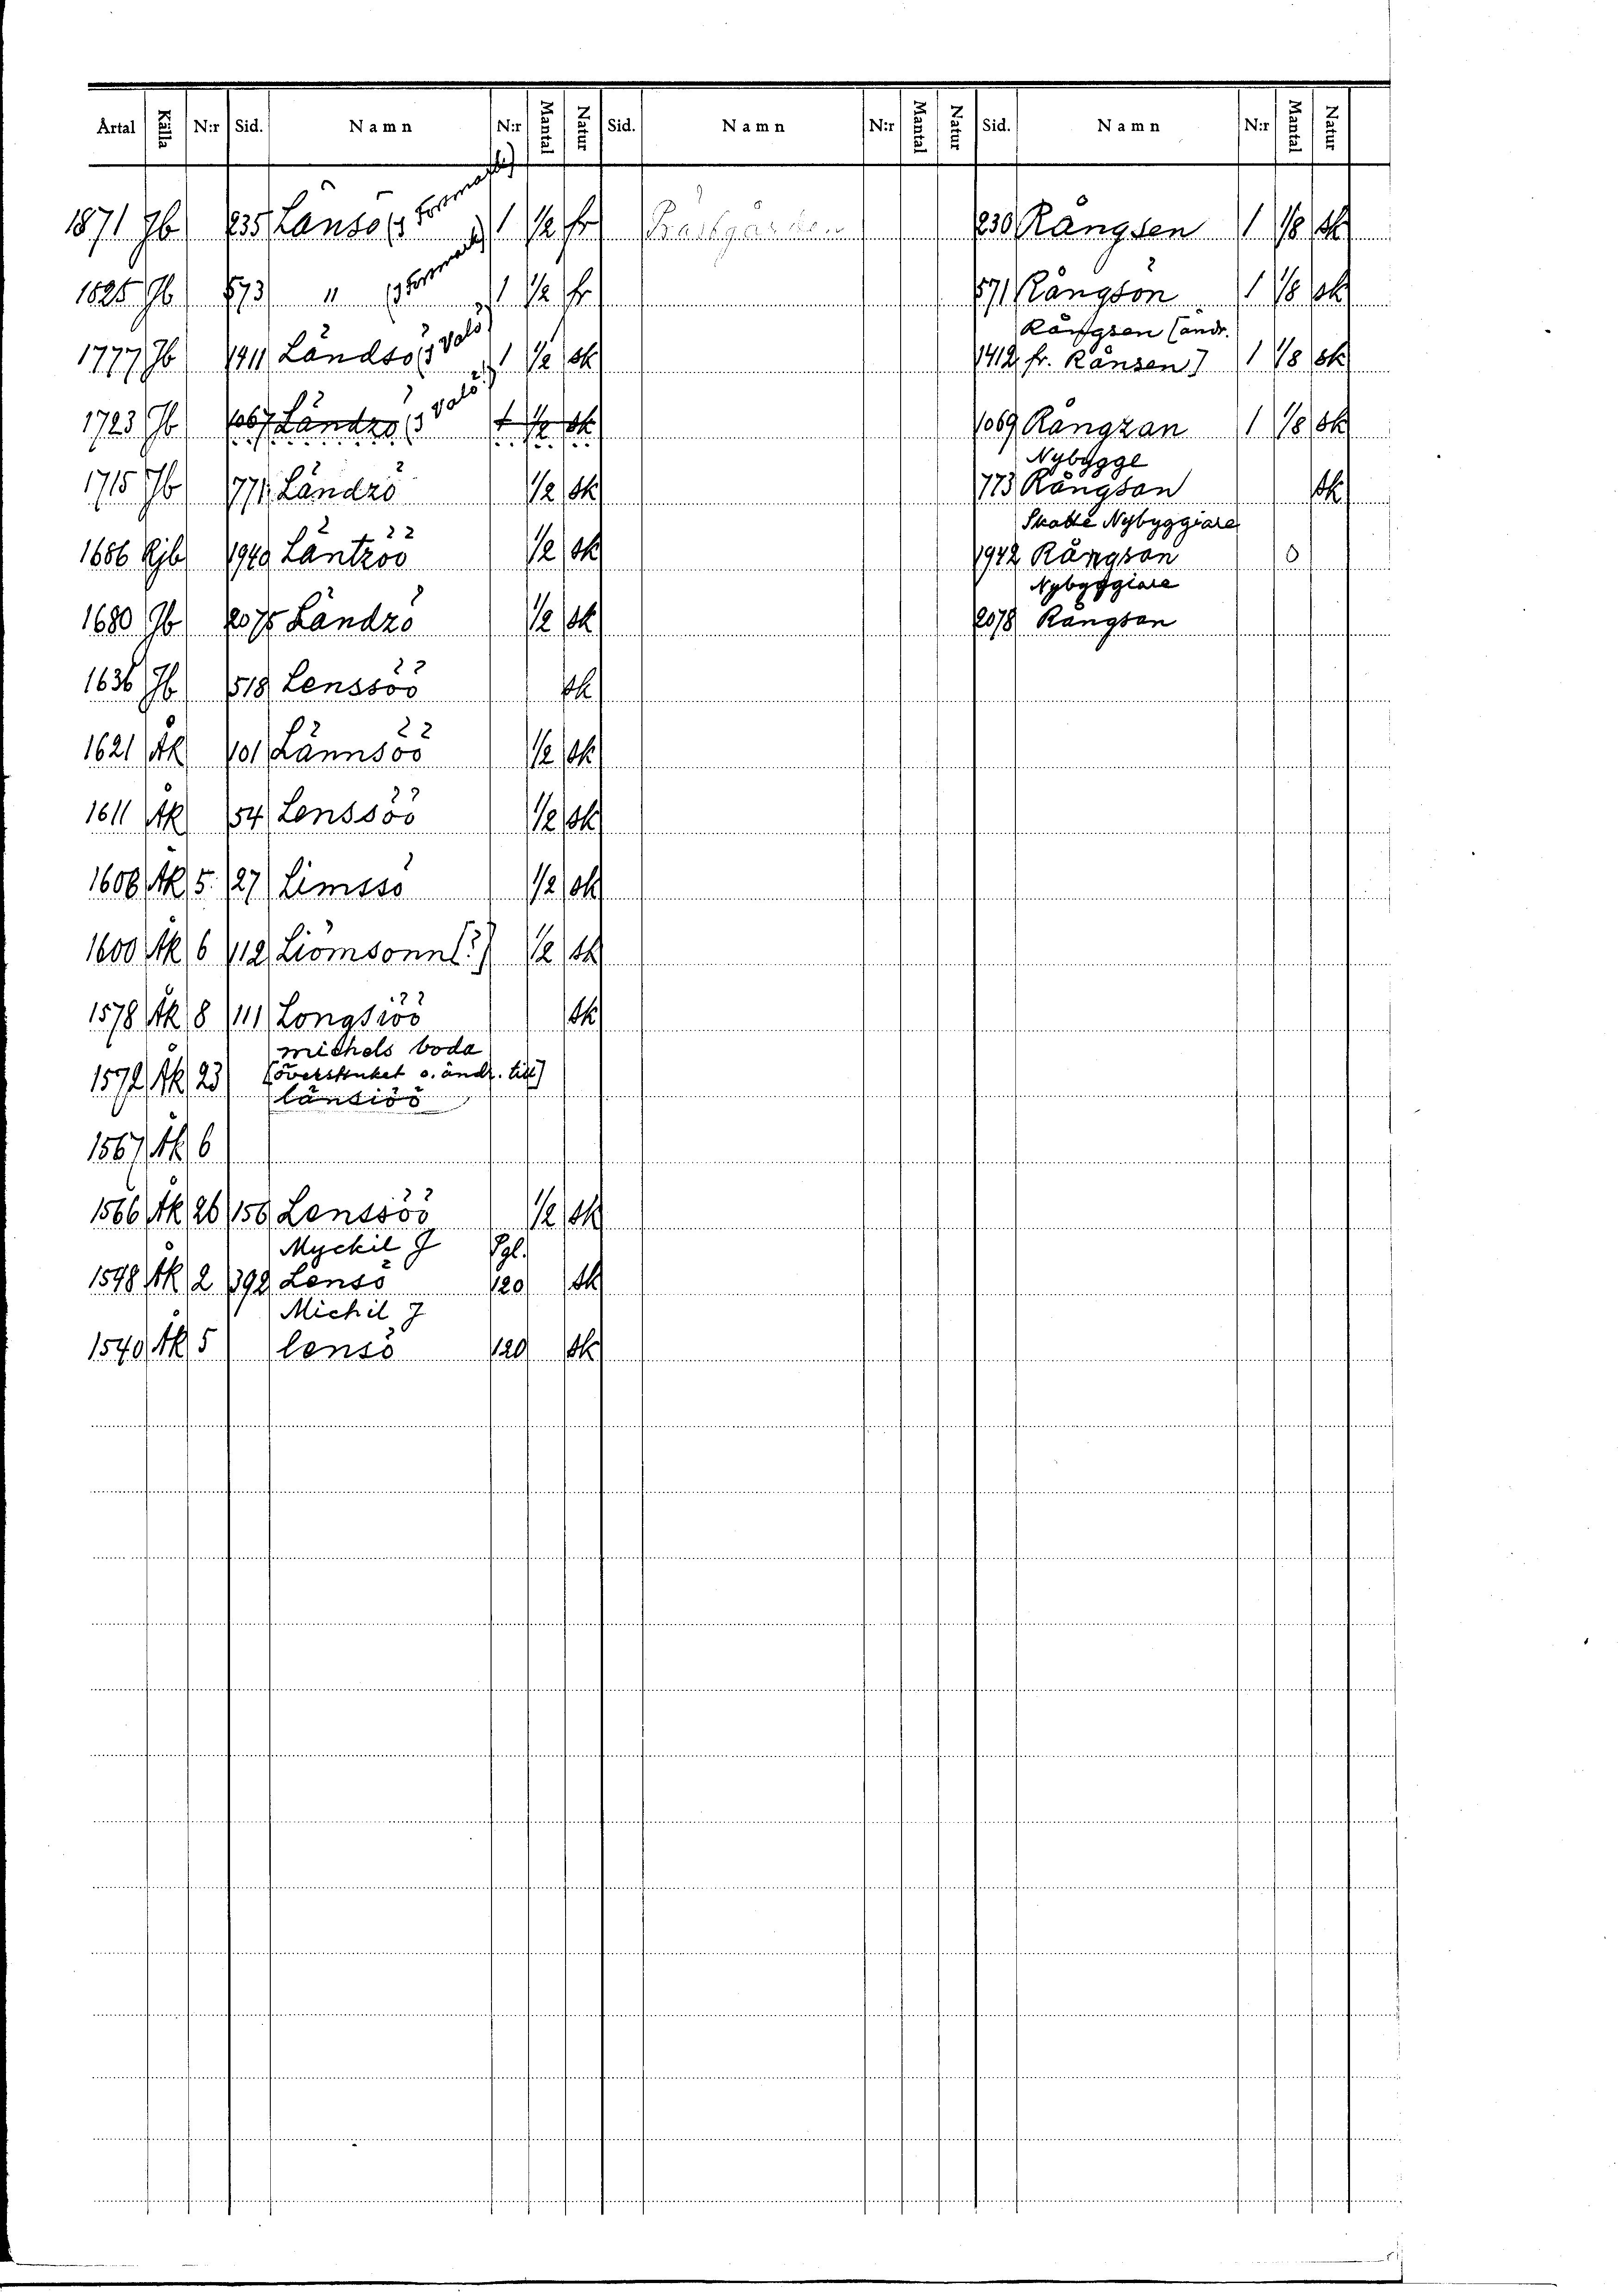 Årtal Källa N:r Sid. Namn N:r Mantal Natur Sid. Namn N:r Mantal Natur Sid. Namn N:r Mantal Natur
1871 Jb 235 Länsö (i Forsmark) 1 1/2 fr Prästgården 230 Rångsen 1 1/8 sk
1825 Jb 573 " (i Forsmark) 1 1/2 fr 571 Rångsön 1 1/8 sk
Rångsen [ändr.
1777 Jb 1411 Ländsö (i Valö) 1 1/2 sk 1412 fr. Rånsen] 1 1/8 sk
1723 Jb 1067 Ländzö (i Valö) 1 1/2 sk 1069 Rångzan 1 1/8 sk
Nybygge
1715 Jb 771 Ländzö 1/2 sk 773 Rångsan sk
Skatte Nybyggiare
1686 Kjb 1940 Läntzöö 1/2 sk 1942 Rångsan 0
Nybyggiare
1680 Jb 2075 Ländzö 1/2 sk 2078 Rångsan
1636 Jb 518 Lenssöö sk
1621 Åk 101 Lännsöö 1/2 sk
1611 Åk 54 Lenssöö 1/2 sk
1608 Åk 5 27 Limssö 1/2 sk
1600 Åk 6 112 Liömsonn [?] 1/2 sk
1578 Åk 8 111 Longsiöö sk
michels boda
1572 Åk 23 [överstruket o. ändr. till]
länsiöö
1567 Åk 6
1566 Åk 26 156 Lenssöö 1/2 sk
Myckil J Pgl.
1548 Åk 2 392 Lensö 120 sk
Michil J
1540 Åk 5 lensö 120 sk